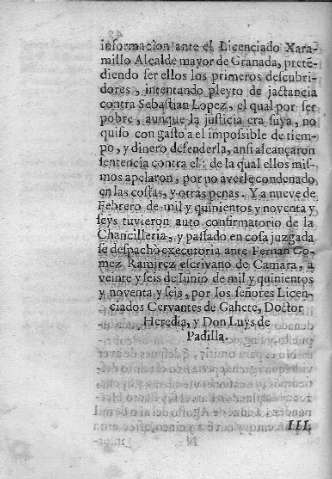 informacion ante el Licenciado Xara-
millo Alcalde mayor de Granada, pretē-
diendo ser ellos los primeros descubri-
dores, intentando pleyto de jactancia
contra Sebastian Lopez, el qual por ser
pobre, aunque la justicia era suya, no
quiso con gasto a el impossible de tiem-
po, y dinero defenderla, ansi alcançaron
sentencia contra el: de la qual ellos mis-
mos apelaron, por no averle condenado
en las costas, y otras penas. Y a nueve de
Febrero de mil y quinientos y noventa y
seys tuvieron auto confirmatorio de la
Chancilleria, y passado en cosa juzgada
se despachò executoria ante Fernan Go-
mez Ramirez escrivano de Camara, a
veinte y seis de Iunio de mil y quinientos
y noventa y seis, por los señores Licen-
ciados Cervantes de Gahete, Doctor
Heredia, y Don Luys de
Padilla.
III.